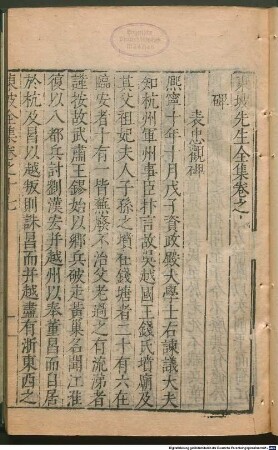 東坡先生全集卷之
碑
表忠觀碑
熙寧十年十月戊子資政殿大學士右諫議大夫
知杭州軍州事臣抃言故吳越國王錢氏墳廟及
其父祖妃夫人子孫之墳在錢塘者二十有六在
臨安者十有一皆蕪廢不治父老過之有流涕者
謹按故武肅王鏐始以鄉兵破走黃巢名聞江淮
復以八都兵討劉漢宏并越州以奉董昌而自居
於杭及昌以越叛則誅昌而并越盡有浙東西之
東坡全集卷之十七